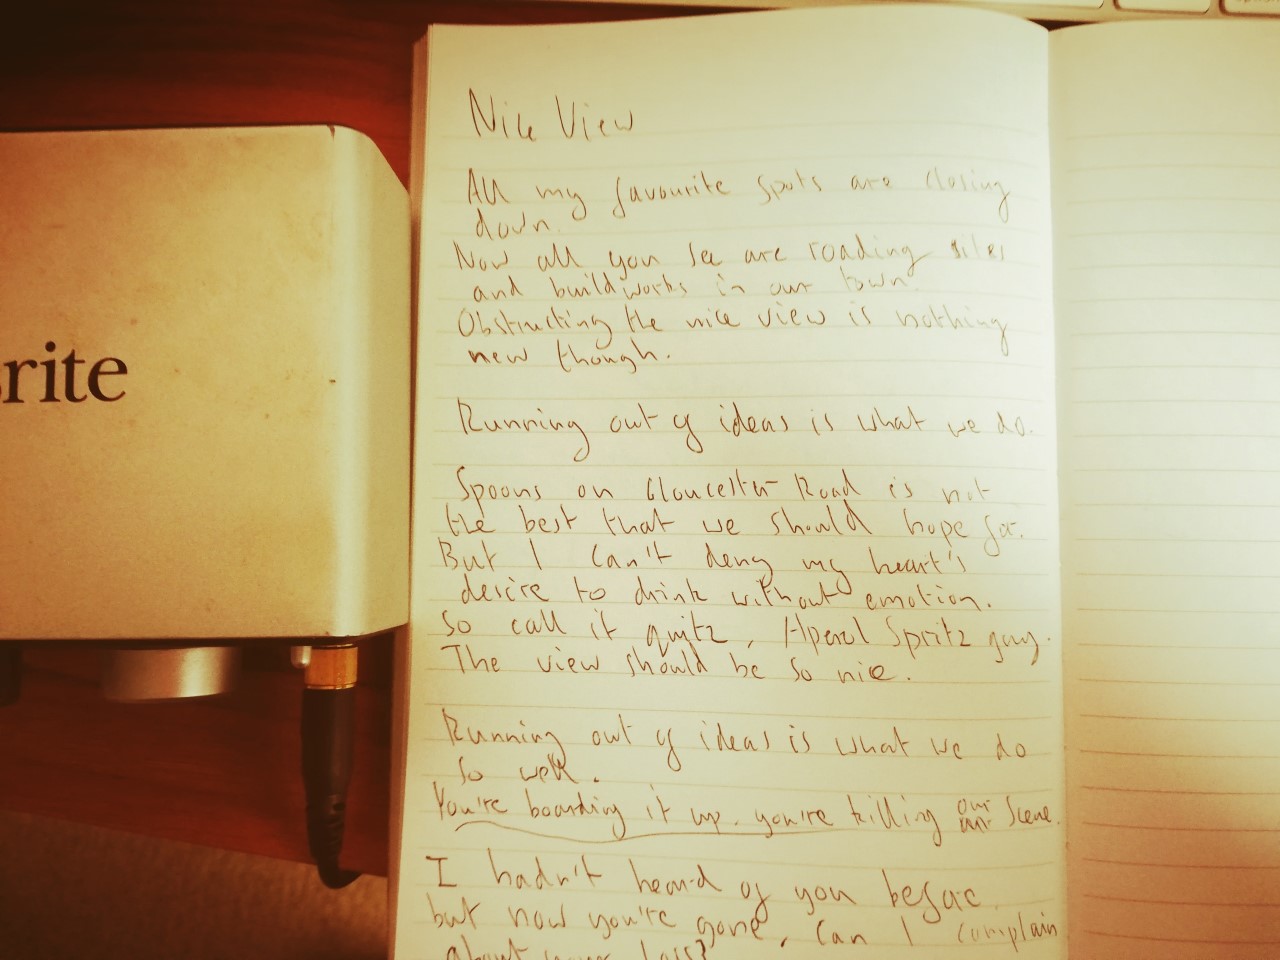 rite
Nice View
All my favourite spots are closing
down.
Now all you see are roading sites
and buildworks in our town.
Obstructing the nice view is nothing
new though.
Running out of ideas is what we do.
Spoons on Gloucester Road is not
the best that we should hope for.
But I can't deny my heart's
desire to drink without emotion.
So call it quitz, Aperol Spritz guy.
The view should be so nice.
Running out of ideas is what we do
so well.
You're boarding it up, you're killing our scene.
I hadn't heard of you before
but now you're gone, can I complain
about your loss?